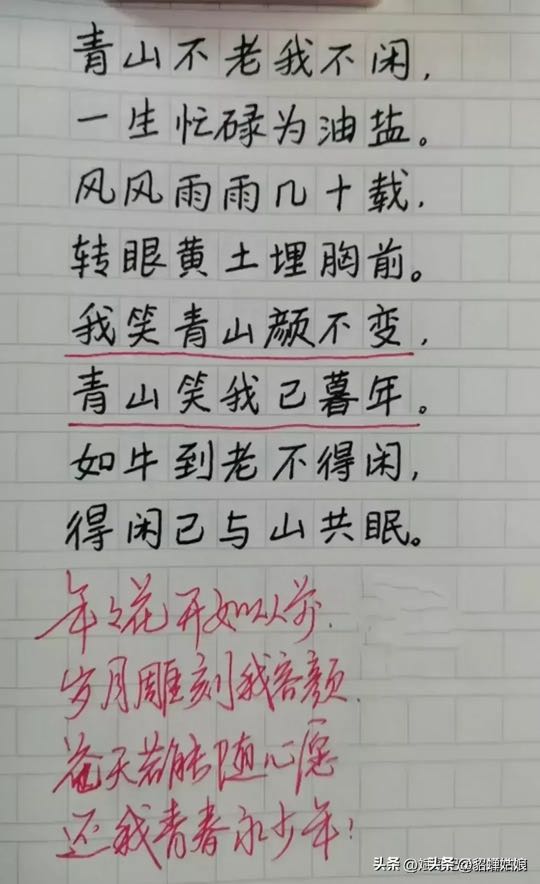 青山不老我不闲,
一生忙碌为油盐。
风风雨雨几十载,
转眼黄土埋胸前。
我笑青山颜不变,
青山笑我已暮年。
如牛到老不得闲,
得闲已与山共眠。
年々花开如以前.
岁月雕刻我容颜.
苍天若能随心愿
还我青春永少年!
头条 @貂蝉姑娘